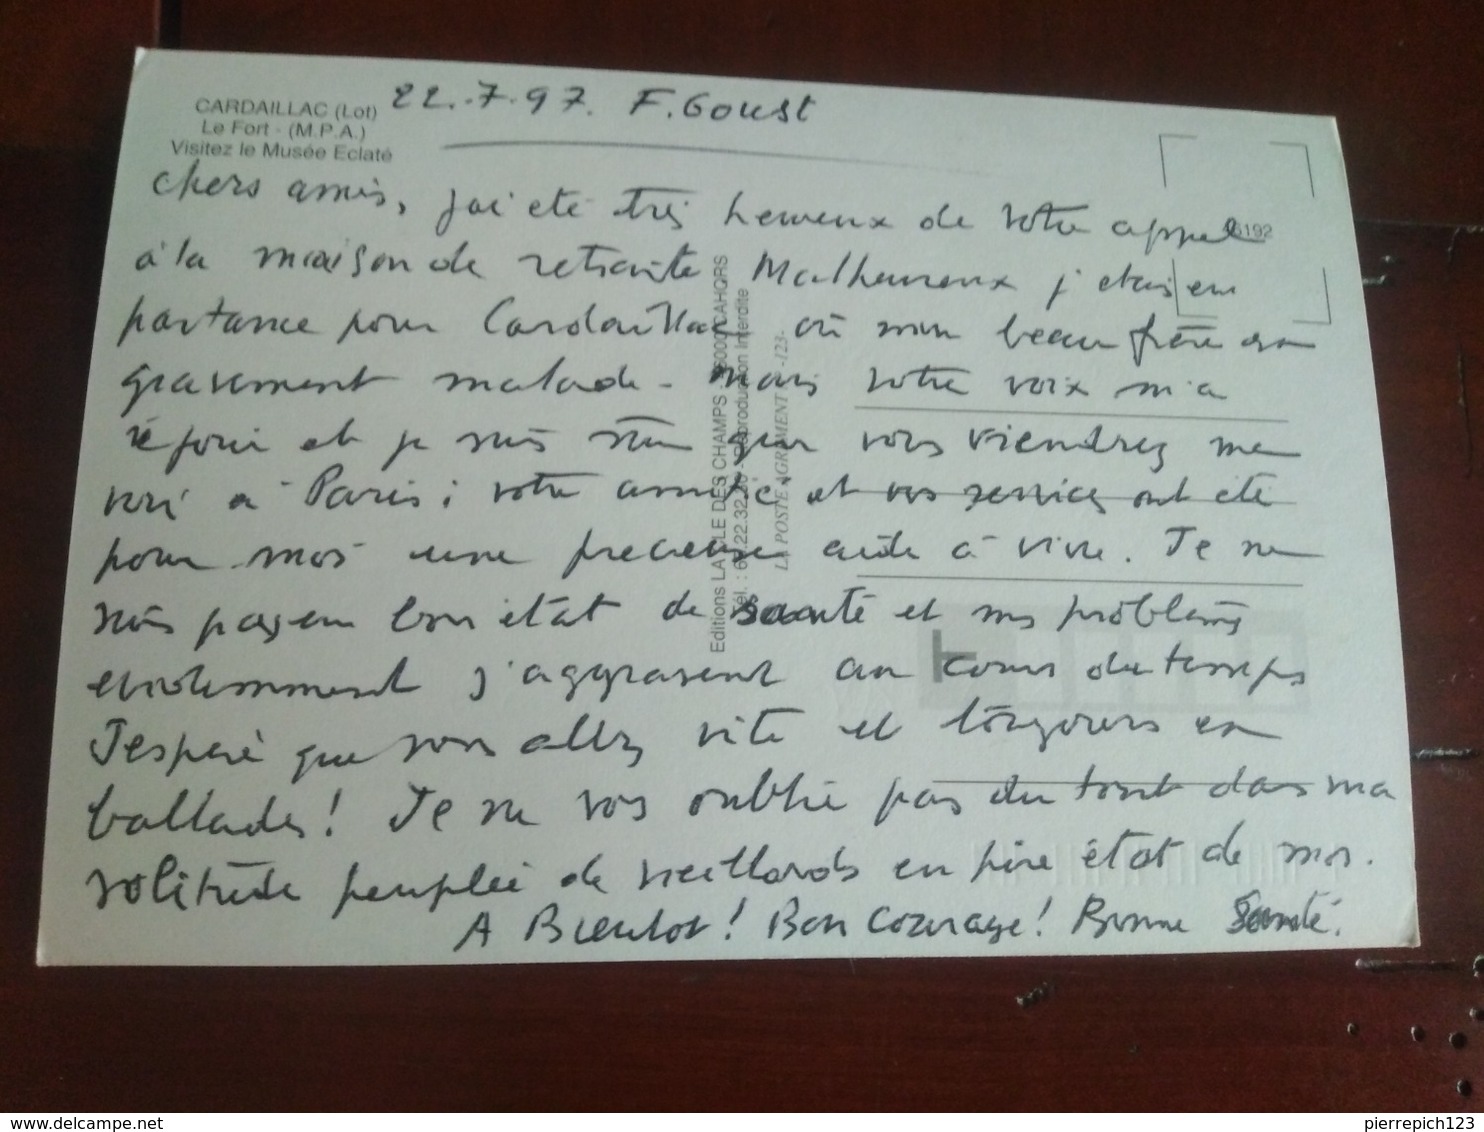 CARDAILLAC (Lot)
Le Fort - (M.P.A.)
Visitez le Musée Eclaté
22.7.97. F. Goust
6192
chers amis, j'ai eté très heureux de votre appel
à la maison de retraite Malheureux j'etais en
partance pour Cardaillac où mon beau frère
gravement malade - mais votre voix m'a
réjoui et je suis sûr que vous viendrez me
voir à Paris ; votre amitié et vos services ont été
pour moi une precieuse aide à vivre. Je ne
suis pas en bon état de santé et mes problèmes
evidemment s'aggravent au cours du temps
J'espère que vous allez vite et toujours en
ballades ! Je ne vous oublie pas du tout dans ma
solitude peuplée de vieillards en pire état de moi.
A Bientot ! Bon Courage ! Bonne Santé.
Editions LA CLE DES CHAMPS - 46000 CAHORS
Reproduction Interdite
LA POSTE AGREMENT -123-
pierrepich123
delcampe.net